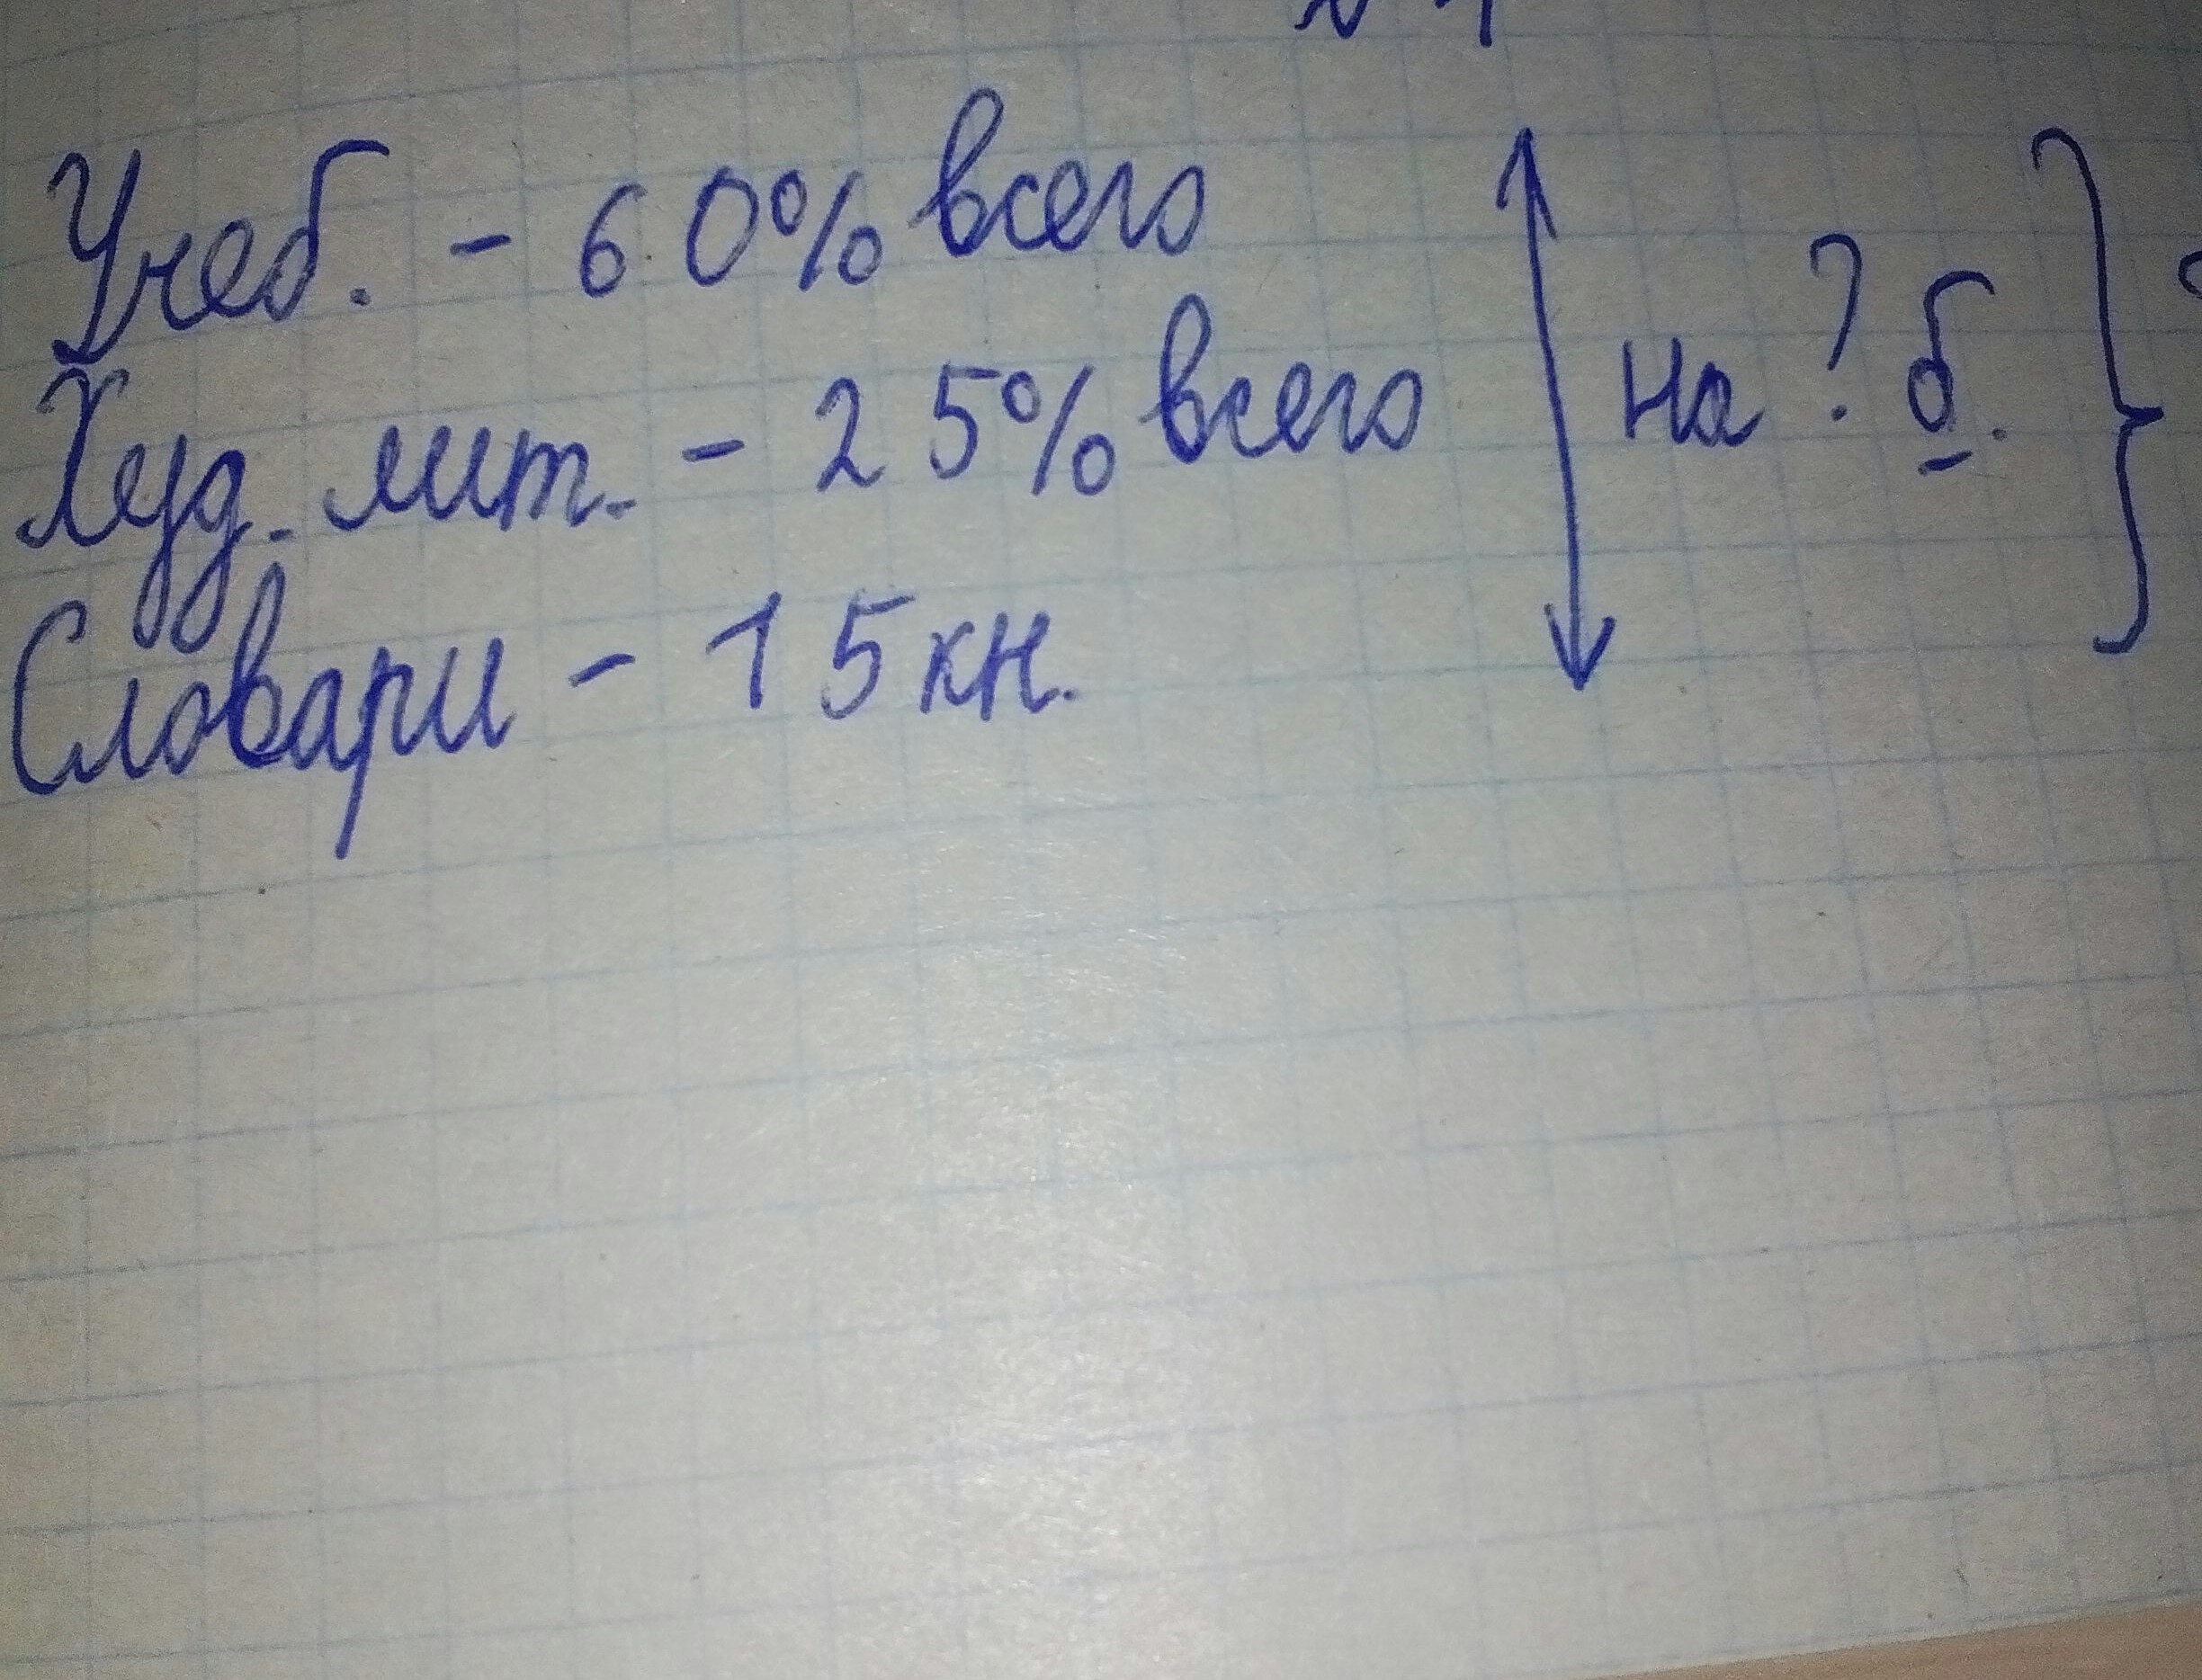 Учеб. - 60% всего
Худ. лит. - 25% всего
на ? б.
Словари - 15 кн.